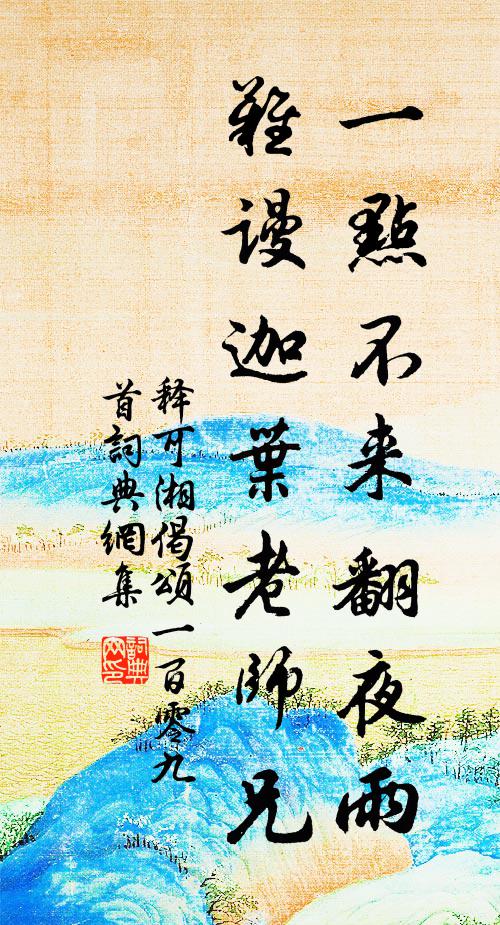 一點不来翻夜雨
難謾迦葉老師兄
释可湘偈頌一百零九
首詞典網集
詞典